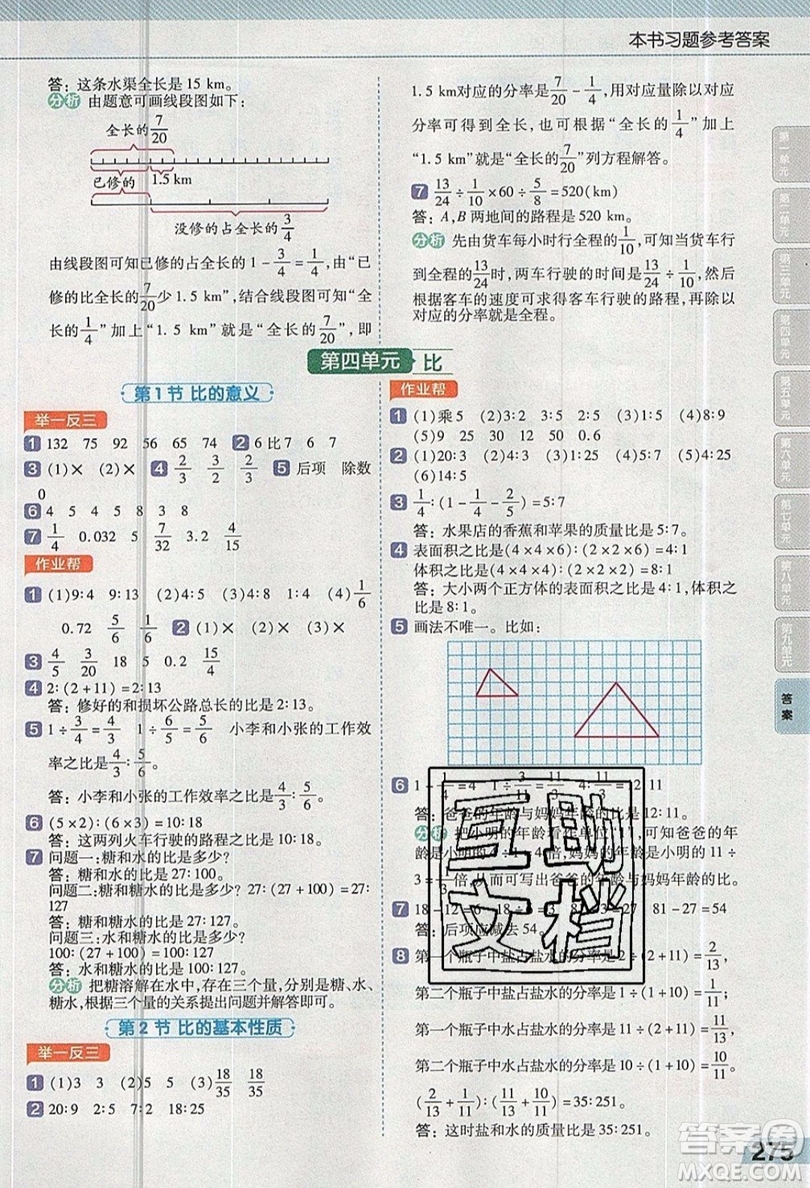 本书习题参考答案
答：这条水渠全长是 15 km。
分析 由题意可画线段图如下：
全长的7/20
已修的 1.5 km
没修的占全长的3/4
由线段图可知已修的占全长的 1－3/4＝1/4，由“已
修的比全长的7/20少 1.5 km”，结合线段图可知“全长的
1/4”加上“1.5 km”就是“全长的7/20”，即
1.5 km对应的分率是7/20－1/4，用对应量除以对应
分率可得到全长，也可根据“全长的1/4”加上
“1.5 km”就是“全长的7/20”列方程解答。
7 13/24÷1/10×60÷5/8＝520(km)
答：A，B 两地间的路程是 520 km。
分析 先由货车每小时行全程的1/10，可求得货车行
到全程的13/24时，两车行驶的时间是13/24÷1/10，然后
根据客车的速度可求得客车行驶的路程，再除以
对应的分率就是全程。
第四单元 比
第 1 节 比的意义
举一反三
1 132 75 92 56 65 74 2 6 比 7 6 7
3 (1)× (2)× 4 2/3 3/2 2/3 5 后项 除数
0
6 4 5 4 5 8 9
7 1/4 0.032 5 7/32 3.2 1/4
作业帮
1 (1)9∶4 9∶13 (2)4∶9 (3)4 (4)1/6
0.72 5/6 1/6 2 (1)× (2)×
3 3/4 33/20 18 5 0.2 4/15
4 2∶(2＋11)＝2∶13
答：修好的和损坏公路总长的比是 2∶13。
5 1÷3/4＝4/3 1÷6/5＝5/6 小李和小张的工作效
率之比是4/3∶5/6。
答：小李和小张的工作效率之比是4/3∶5/6。
6 (5×2)∶(6×3)＝10∶18
答：这两列火车行驶的路程之比是 10∶18。
7 问题一：糖和水的比是多少？
答：糖和水的比是 27∶100。
问题二：糖和糖水的比是多少？27∶(27＋100)＝27∶
127
答：糖和糖水的比是 27∶127。
问题三：水和糖水的比是多少？
100∶(27＋100)＝100∶127
答：水和糖水的比是 100∶127。
分析 把糖溶解在水中，存在三个量，分别是糖、水、
糖水，根据三个量的关系提出问题并解答即可。
第 2 节 比的基本性质
举一反三
1 (1)3 3 (2)5 5 (3)18/35 18/35
2 20∶9 2∶5 7∶2 18∶25
作业帮
1 (1)乘5 (2)4∶5 (3)4∶5 (4)8∶9
(5)9 25 30 12 50 0.6
2 (1)20∶3 (2)9∶16 (3)15∶8 (4)1∶3
(6)14∶5
3 1/4∶(1－1/4－2/5)＝5∶7
答：水果店的香蕉和苹果的质量比是 5∶7。
4 表面积之比是(4×4×6)∶(2×2×6)＝4∶1
体积之比是(4×4×4)∶(2×2×2)＝8∶1
答：大小两个正方体的表面积之比是 4∶1，体积之
比是 8∶1。
5 画法不唯一。比如：
6
答：爸爸的年龄与妈妈年龄的比是 12∶11。
7
答：后项应减去 54。
8 第一个瓶子中盐占盐水的分率是 2÷(2＋11)＝2/13
第二个瓶子中盐占盐水的分率是 1÷(1＋10)＝1/11
第一个瓶子中水占盐水的分率是 11÷(2＋11)＝11/13
第二个瓶子中水占盐水的分率是 10÷(1＋10)＝10/11
(2/13＋1/11)∶(11/13＋10/11)＝35∶251
答：这时盐和水的质量比是 35∶251。
第一单元
第二单元
第三单元
第四单元
第五单元
第六单元
第七单元
第八单元
第九单元
答案
互助
文档
答案圈
MXQE.COM
275